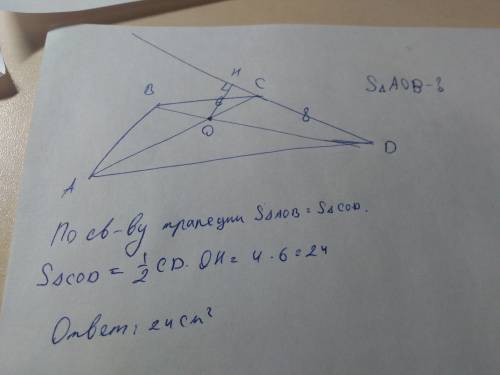 H
B
C
S△AOB-?
6
8
O
D
A
По св-ву трапеции S△AOB = S△COD.
S△COD = 1/2 CD · OH = 4 · 6 = 24
Ответ: 24 см²